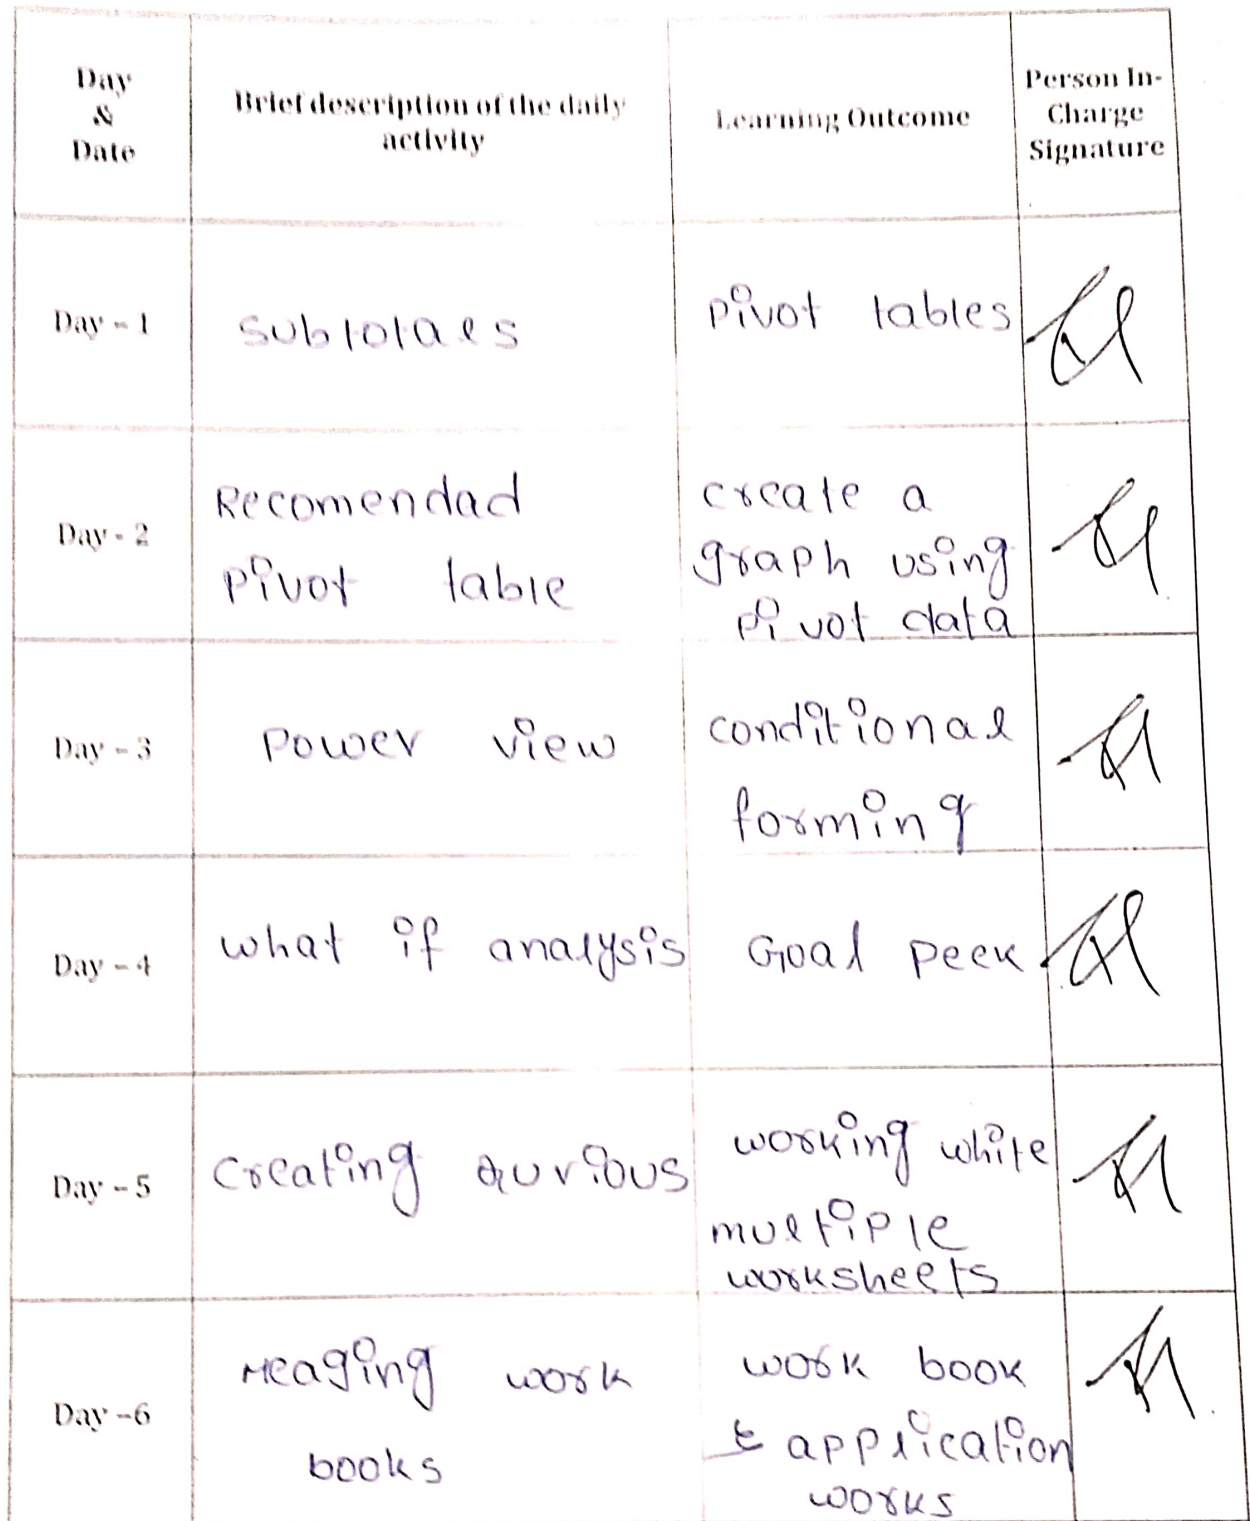 Day
&
Date
Brief description of the daily
activity
Learning Outcome
Person In-
Charge
Signature
Day - 1
Subtotals
Pivot tables
Day - 2
Recomendad
Pivot table
create a
graph using
pivot data
Day - 3
Power view
conditional
forming
Day - 4
what if analysis
Goal Peek
Day - 5
Creating
working white
multiple
worksheets
Day -6
work
books
work book
& application
works